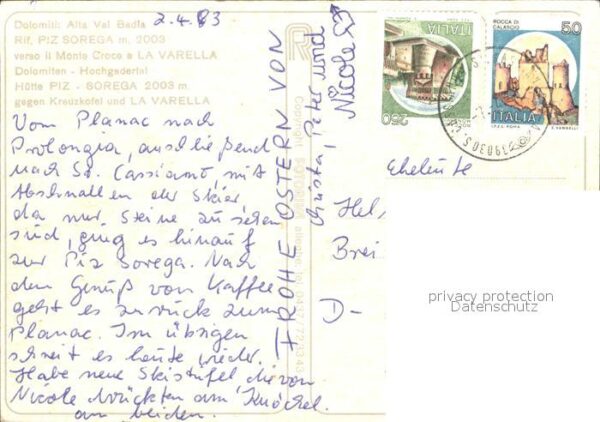 2.4.83
Dolomiti: Alta Val Badia
Rif. PIZ SOREGA m. 2003
verso il Monte Croce e LA VARELLA
Dolomiten - Hochgadertal
Hütte PIZ - SOREGA 2003 m.
gegen Kreuzkofel und LA VARELLA
Vom Planac nach
Prolongia, anschließend
nach St. Cassiano, mit
Abschnallen der Skier,
da nur Steine zu sehen
sind, ging es hinauf
zur Piz Sorega. Nach
dem Genuß von Kaffee
geht es zurück zum
Planac. Im übrigen
schneit es heute wieder.
Habe neue Skistiefel die von
Nicole drückten am Knöchel.
an beiden.
FROHE OSTERN VON
Christa, Peter und
Nicole
Copyright
250
ITALIA
ROCCA DI
CALASCIO
50
ITALIA
Eheleute
Hel
Brei
D-
privacy protection
Datenschutz